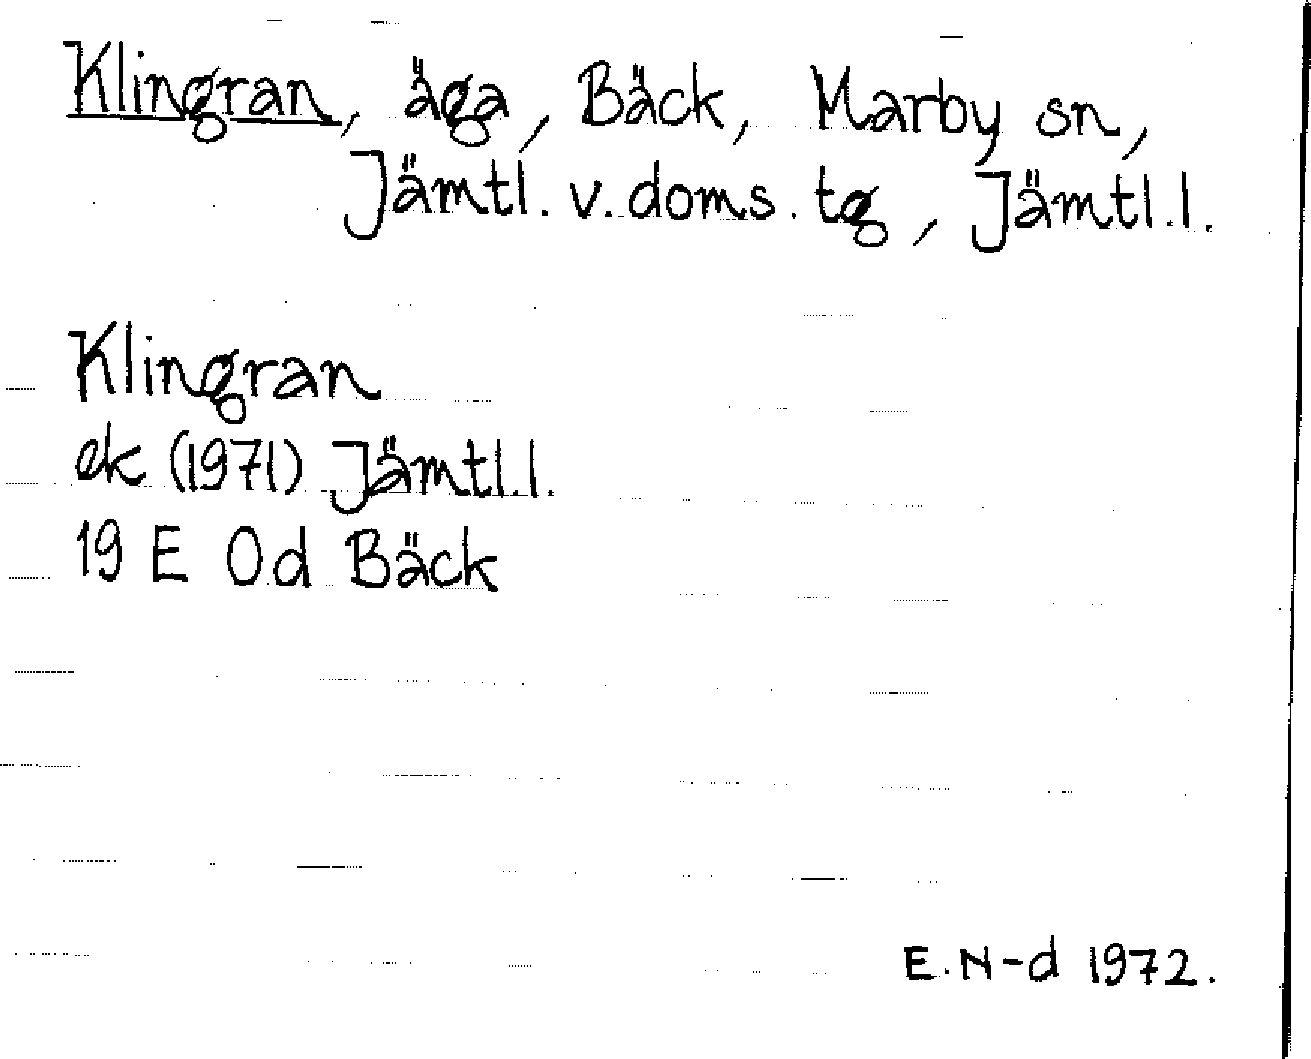 Klingran, äga, Bäck, Marby sn,
Jämtl. v. doms. tg, Jämtl.l.
Klingran
ek (1971) Jämtl.l.
19 E 0d Bäck
E.N-d 1972.